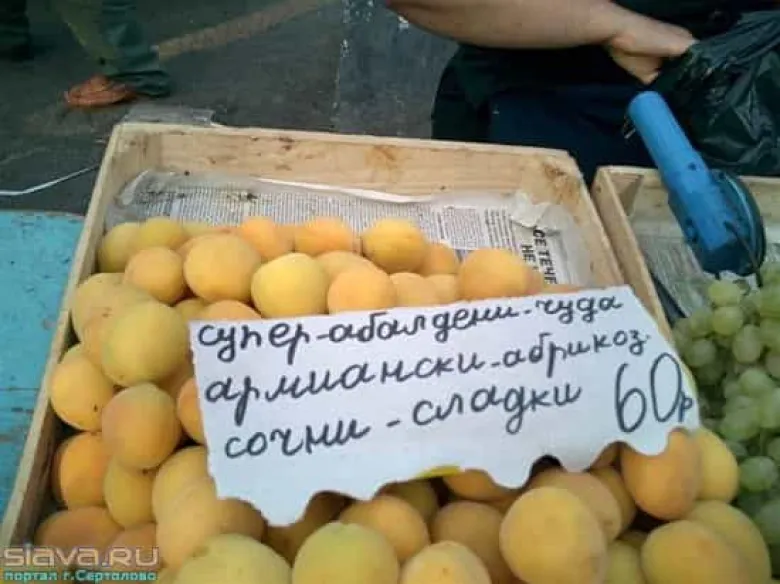 СЕ ТЕЧЕ
НЕ
супер-абалдени-чуда
армиански-абрикоз.
сочни-сладки 60р
siava.ru
портал г.Сертолово